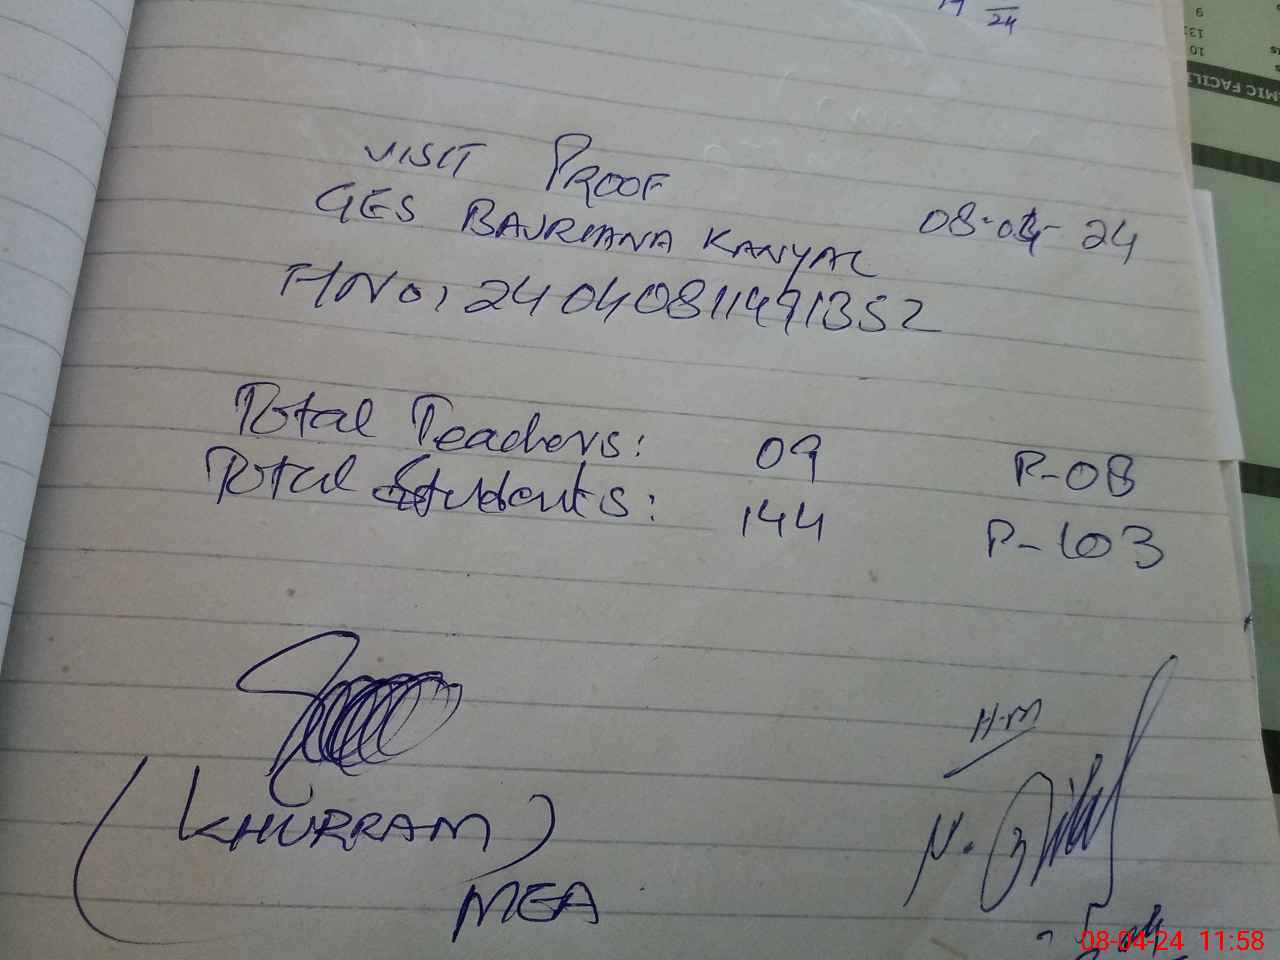 24
VISIT PROOF
GES BAJRIANA KANYAL 08-04-24
THNo, 24040811491352
Total Teachers: 09 P-08
Total Students: 144 P-103
H.M
(KHURRAM)
MEA
08-04-24 11:58